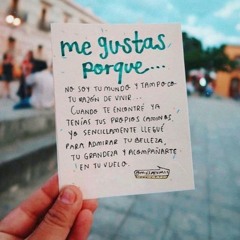 me gustas
porque...
NO SOY TU MUNDO Y TAMPOCO
TU RAZÓN DE VIVIR...
CUANDO TE ENCONTRÉ YA
TENÍAS TUS PROPIOS CAMINOS,
YO SENCILLAMENTE LLEGUÉ
PARA ADMIRAR TU BELLEZA,
TU GRANDEZA Y ACOMPAÑARTE
EN TU VUELO.